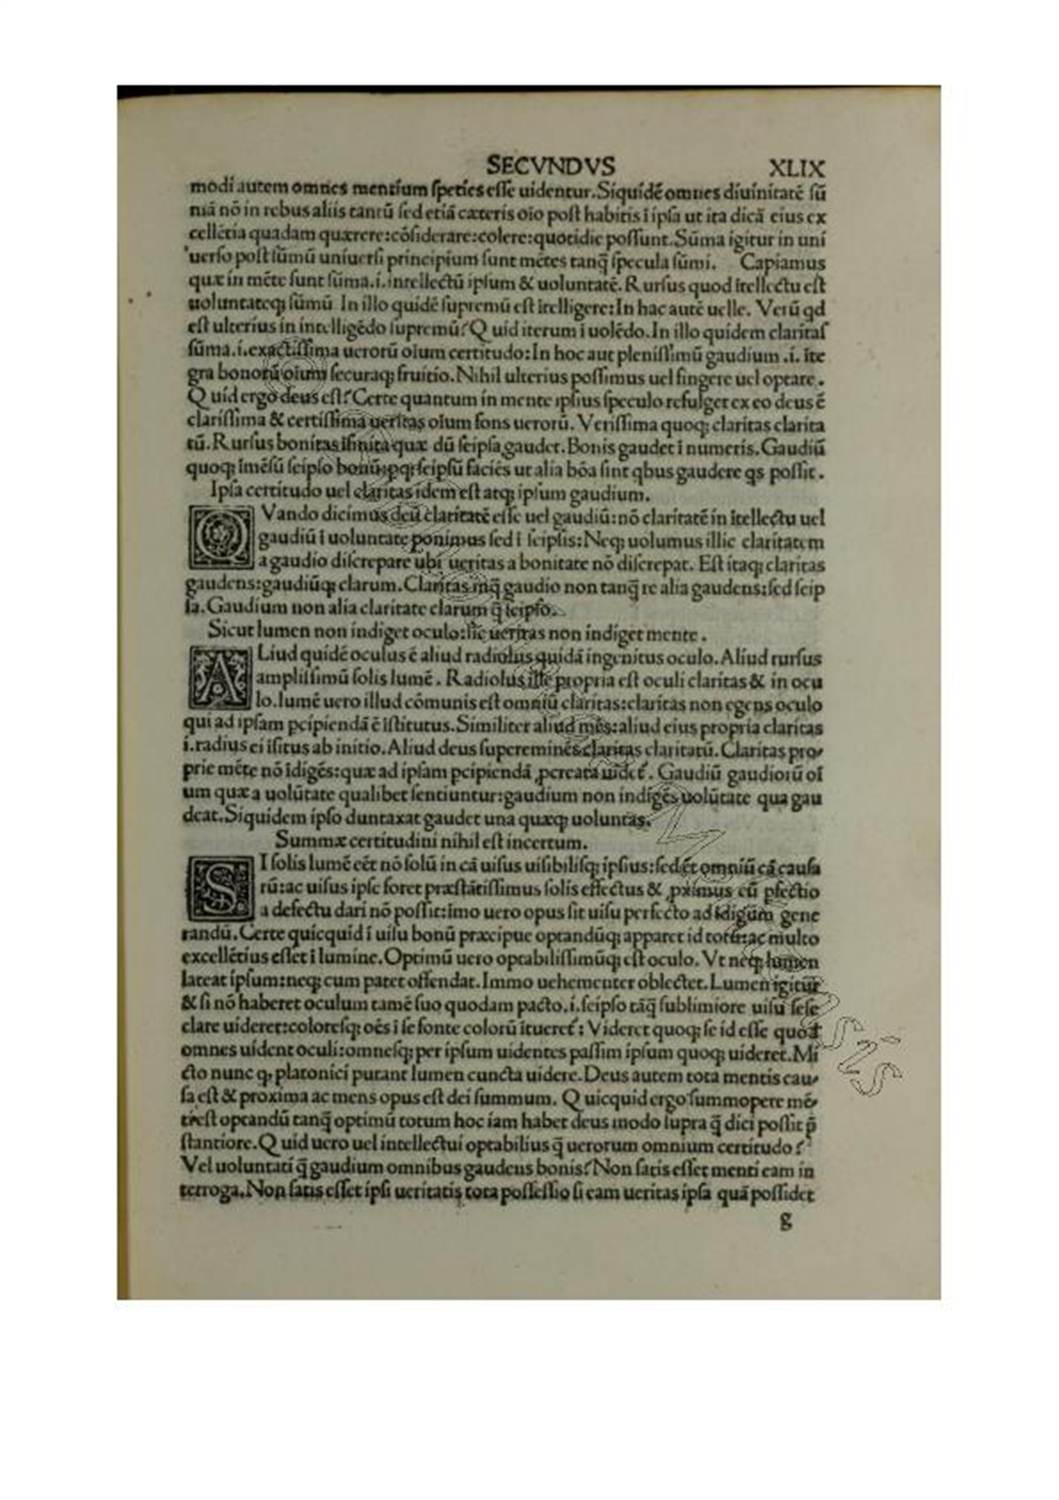 SECVNDVS XLIX
modi autem omnes mentium ſpeties eſſe uidentur. Siquidē omnes diuinitatē ſū
mā nō in rebus aliis tantū ſed etiā cæteris oīo poſt habitis ī ipſa ut ita dicā eius ex
cellētia quadam quærere: cōſiderare: colere: quotidie poſſunt. Sūma igitur in uni
uerſo poſt ſūmū uniuerſi principium ſunt mētes tanq̄ ſpecula ſūmi. Capiamus
quæ in mēte ſunt ſūma .i. intellectū ipſum & uoluntatē. Rurſus quod ītellectu eſt
uoluntateq; ſūmū In illo quidē ſupremū eſt ītelligere: In hac autē uelle. Verū qd
eſt ulterius in intelligēdo ſupremū? Quid iterum ī uolēdo. In illo quidem claritaſ
ſūma .i. exactiſſima uerorū oīum certitudo: In hoc aut pleniſſimū gaudium .i. īte
gra bonorū oīum ſecuraq; fruitio. Nihil ulterius poſſimus uel fingere uel optare.
Quid ergo deus eſt? Certe quantum in mente ipſius ſpeculo refulget ex eo deus ē
clariſſima & certiſſima ueritas oīum fons uerorū. Veriſſima quoq; claritas clarita
tū. Rurſus bonitas īfinita quæ dū ſeipſa gaudet. Bonis gaudet ī numeris. Gaudiū
quoq; īmēſū ſeipſo bonū; ſeipſū faciēs ut alia bōa ſint qbus gaudere qs poſſit.
Ipſa certitudo uel claritas idem eſt atq; ipſum gaudium.
QVando dicimus deū claritatē eſſe uel gaudiū: nō claritatē in ītellectu uel
gaudiū ī uoluntate ponimus ſed ī ſeipſis: Neq; uolumus illic claritatem
a gaudio diſcrepare ubi ueritas a bonitate nō diſcrepat. Eſt itaq; claritas
gaudens: gaudiūq; clarum. Claritas inq̄ gaudio non tanq̄ re alia gaudens: ſed ſeip
ſa. Gaudium non alia claritate clarum q̄ ſeipſo.
Sicut lumen non indiget oculo: ſic ueritas non indiget mente.
ALiud quidē oculus ē aliud radiolus quidā ingenitus oculo. Aliud rurſus
ampliſſimū ſolis lumē. Radiolus iſte propria eſt oculi claritas & in ocu
lo. lumē uero illud cōmunis eſt omniū claritas: claritas non egens oculo
qui ad ipſam pcipiendā ē īſtitutus. Similiter aliud mēs: aliud eius propria claritas
i. radius ei īſitus ab initio. Aliud deus ſupereminēs claritas claritatū. Claritas pro⸗
prie mēte nō īdigēs: quæ ad ipſam pcipiendā, pcreata uidet̄. Gaudiū gaudiorū oī
um quæ a uolūtate qualibet ſentiuntur: gaudium non indigēs uolūtate qua gau
deat. Siquidem ipſo duntaxat gaudet una quæq; uoluntas.
Summæ certitudini nihil eſt incertum.
SI ſolis lumē eēt nō ſolū in cā uiſus uiſibiliſq; ipſius: ſed ēt omniū cā cauſa
rū: ac uiſus ipſe foret præſtātiſſimus ſolis effectus & primus cū pfectio
a defectu dari nō poſſit: imo uero opus ſit uiſu perfecto ad īdigūm gene
randū. Certe quicquid ī uiſu bonū præcipue optandūq; apparet id totū: ac multo
excellētius eſſet ī lumine. Optimū uero optabiliſſimūq; eſt oculo. Vt neq; lumen
lateat ipſum: neq; cum patet offendat. Immo uehementer oblectet. Lumen igitur
& ſi nō haberet oculum tamē ſuo quodam pacto .i. ſeipſo tāq̄ ſublimiore uiſu ſeſe
clare uideret: coloreſq; oēs ī ſe fonte colorū ītueret̄: Videret quoq; ſe id eſſe quod
omnes uident oculi: omneſq; per ipſum uidentes paſſim ipſum quoq; uideret. Mi
cto nunc q, platonici putant lumen cuncta uidere. Deus autem tota mentis cau⸗
ſa eſt & proxima ac mens opus eſt dei ſummum. Quicquid ergo ſummopere mē⸗
ti eſt optandū tanq̄ optimū totum hoc iam habet deus modo ſupra q̄ dici poſſit p̄
ſtantiore. Quid uero uel intellectui optabilius q̄ uerorum omnium certitudo?
Vel uoluntati q̄ gaudium omnibus gaudens bonis? Non ſatis eſſet menti eam in
terroga. Non ſatis eſſet ipſi ueritatis tota poſſeſſio ſi eam ueritas ipſa quā poſſidet
g